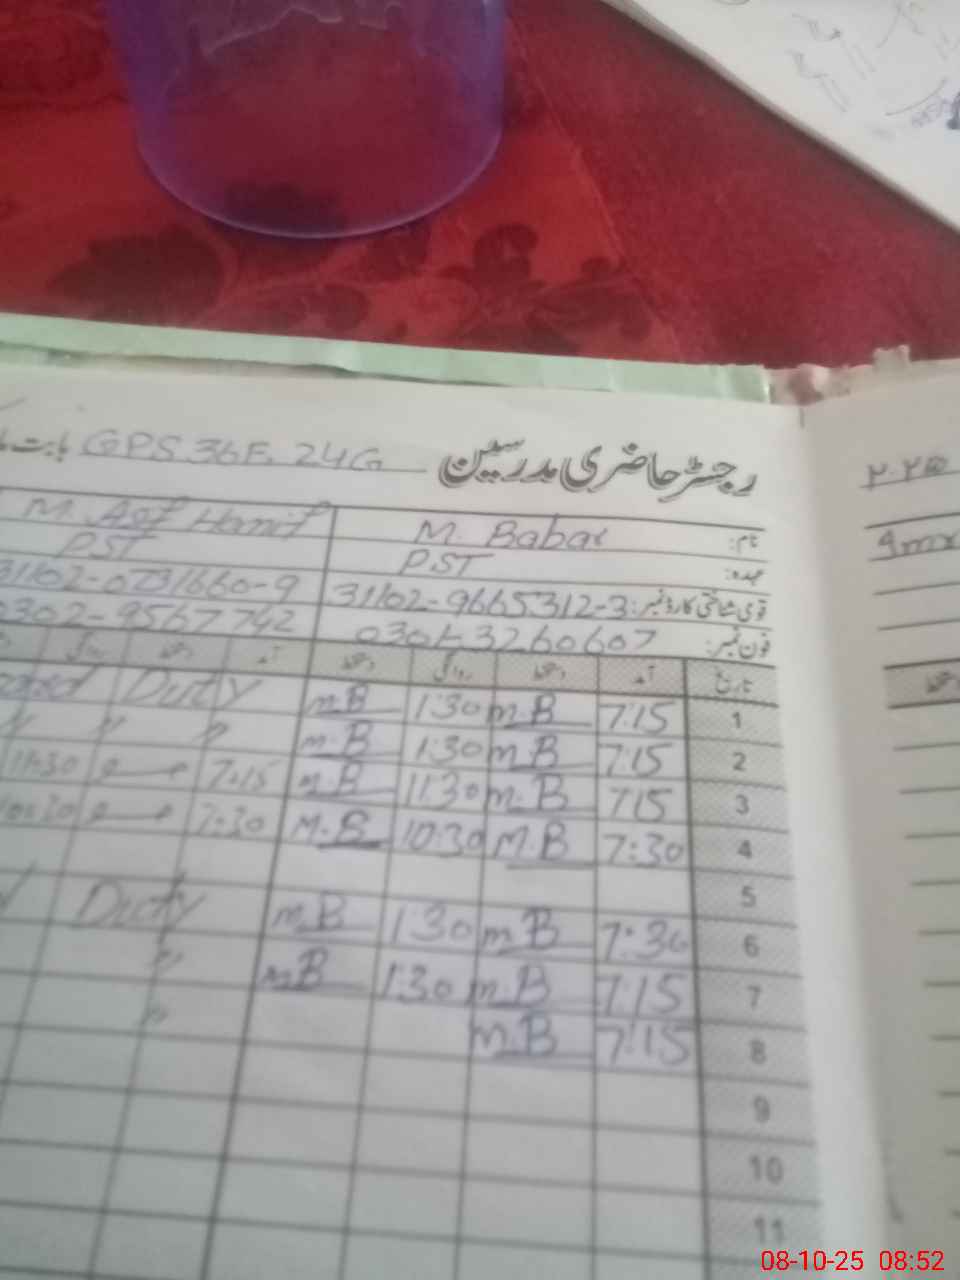 رجسٹر حاضری مدرسین GPS 36F, 24G بابت ماہ
۲۰۲۵
نام: M. Babar M. Asif Hanif
عہدہ: PST PST
قومی شناختی کارڈ نمبر: 31102-9665312-3 31102-0731660-9
فون نمبر: 0302-9567742
تاریخ آمد دستخط روانگی دستخط آمد دستخط روانگی
1 7:15 m.B 1:30 m.B Duty
2 7:15 m.B 1:30 m.B " " "
3 715 m.B 11:30 m.B 7:15 11:30
4 7:30 M.B 10:30 M.B 7:30 10:30
5
6 7:30 m.B 1:30 m.B Duty
7 7:15 m.B 1:30 m.B "
8 7:15 m.B "
9
10
11
08-10-25 08:52